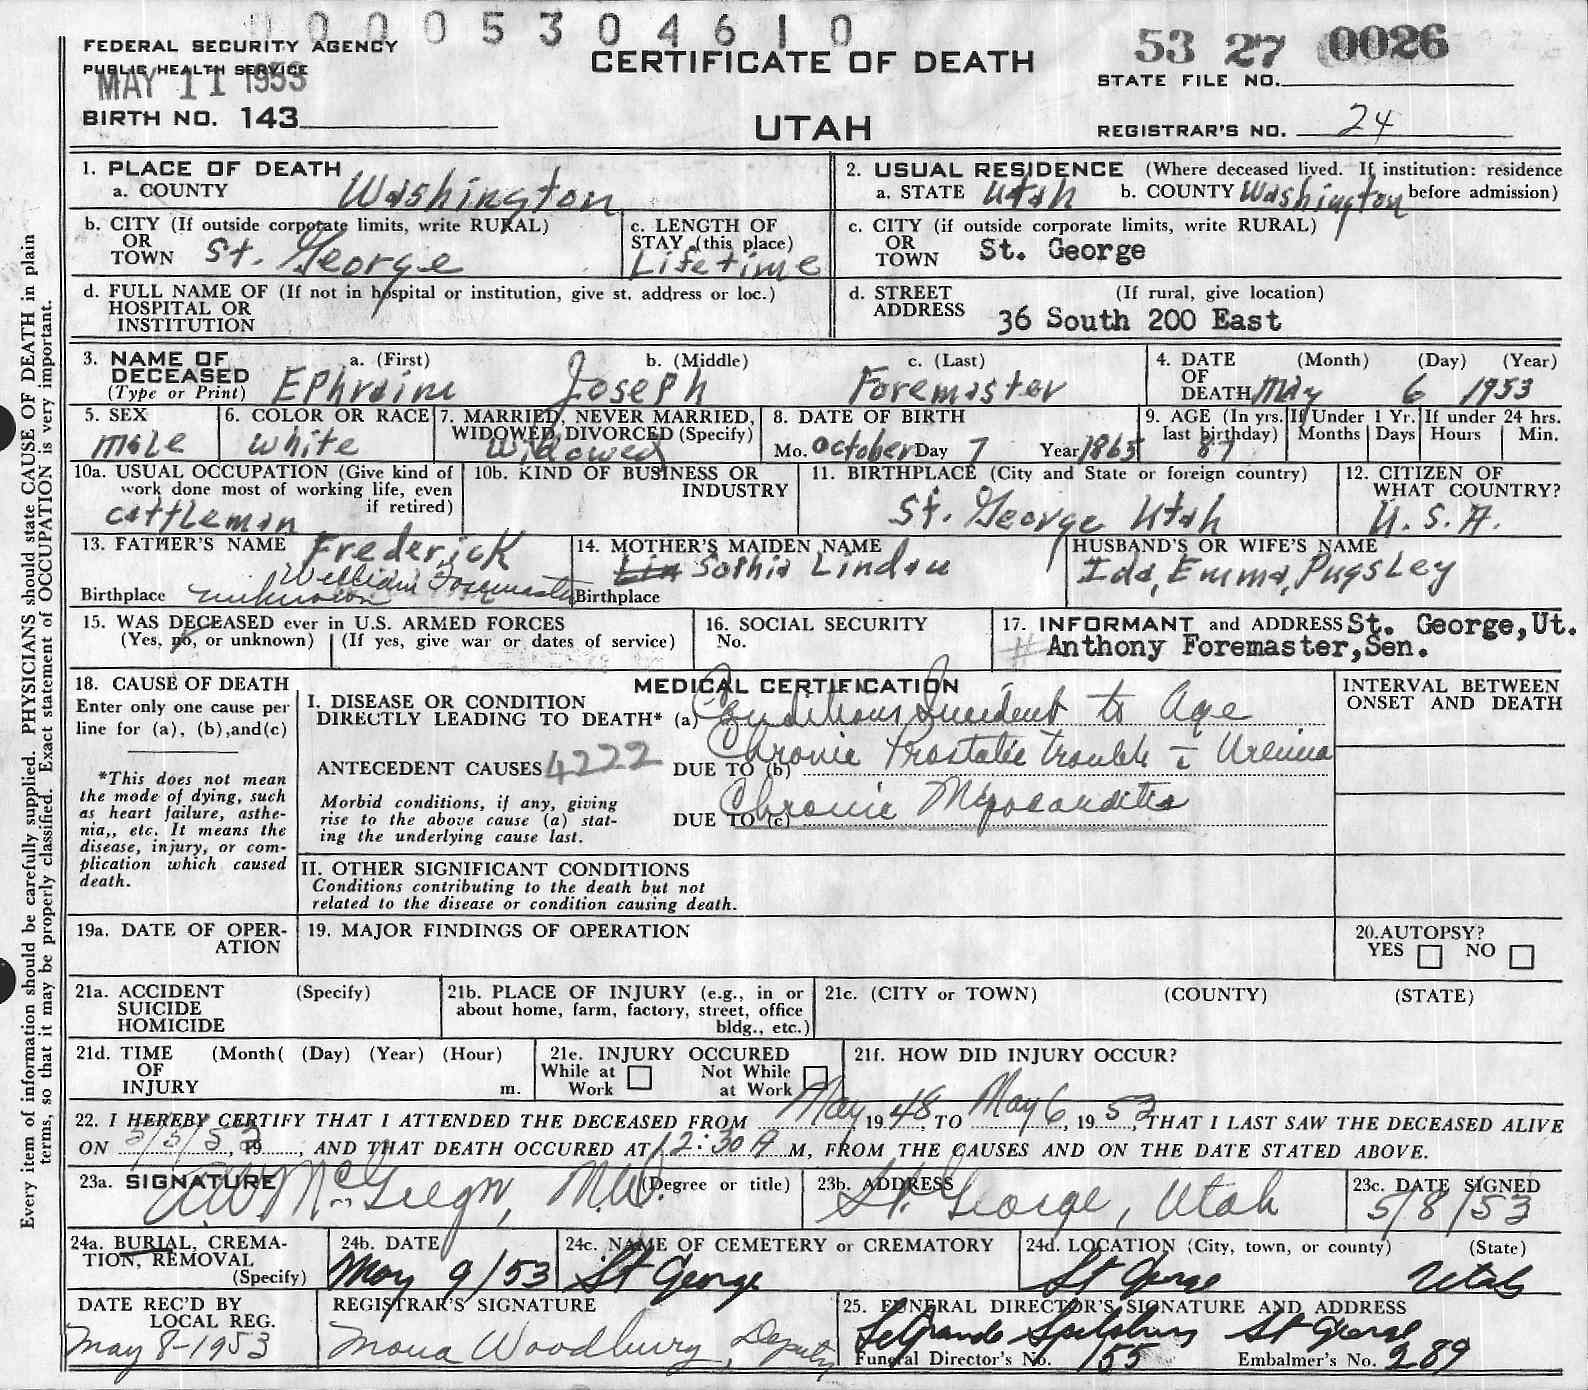 00005304610
FEDERAL SECURITY AGENCY
PUBLIC HEALTH SERVICE
MAY 11 1953
BIRTH NO. 143
CERTIFICATE OF DEATH
UTAH
53 27 0026
STATE FILE NO.
REGISTRAR'S NO. 24
1. PLACE OF DEATH
a. COUNTY Washington
2. USUAL RESIDENCE (Where deceased lived. If institution: residence
a. STATE Utah b. COUNTY Washington before admission)
b. CITY (If outside corporate limits, write RURAL)
OR
TOWN St. George
c. LENGTH OF
STAY (this place)
Lifetime
c. CITY (if outside corporate limits, write RURAL)
OR
TOWN St. George
d. FULL NAME OF (If not in hospital or institution, give st. address or loc.)
HOSPITAL OR
INSTITUTION
d. STREET (If rural, give location)
ADDRESS 36 South 200 East
3. NAME OF a. (First) b. (Middle) c. (Last)
DECEASED
(Type or Print) Ephraim Joseph Foremaster
4. DATE (Month) (Day) (Year)
OF
DEATH May 6 1953
5. SEX
Male
6. COLOR OR RACE
White
7. MARRIED, NEVER MARRIED,
WIDOWED, DIVORCED (Specify)
Widowed
8. DATE OF BIRTH
Mo. October Day 7 Year 1865
9. AGE (In yrs. last birthday) If Under 1 Yr. If under 24 hrs.
Months Days Hours Min.
87
10a. USUAL OCCUPATION (Give kind of
work done most of working life, even
if retired)
cattleman
10b. KIND OF BUSINESS OR
INDUSTRY
11. BIRTHPLACE (City and State or foreign country)
St. George Utah
12. CITIZEN OF
WHAT COUNTRY?
U. S. A.
13. FATHER'S NAME Frederick
William Foremaster
Birthplace unknown
14. MOTHER'S MAIDEN NAME
Lin Sophia Lindau
Birthplace
HUSBAND'S OR WIFE'S NAME
Ida, Emma, Pugsley
15. WAS DECEASED ever in U.S. ARMED FORCES
(Yes, no, or unknown) (If yes, give war or dates of service)
16. SOCIAL SECURITY
No.
17. INFORMANT and ADDRESS St. George, Ut.
# Anthony Foremaster, Sen.
18. CAUSE OF DEATH
Enter only one cause per
line for (a), (b), and (c)
*This does not mean
the mode of dying, such
as heart failure, asthe-
nia,, etc. It means the
disease, injury, or com-
plication which caused
death.
MEDICAL CERTIFICATION
I. DISEASE OR CONDITION
DIRECTLY LEADING TO DEATH* (a) Conditions Incident to Age
ANTECEDENT CAUSES 4222 DUE TO (b) Chronic Prostatic trouble c Uremia
Morbid conditions, if any, giving
rise to the above cause (a) stat-
ing the underlying cause last.
DUE TO (c) Chronic Myocarditis
INTERVAL BETWEEN
ONSET AND DEATH
II. OTHER SIGNIFICANT CONDITIONS
Conditions contributing to the death but not
related to the disease or condition causing death.
19a. DATE OF OPER-
ATION
19. MAJOR FINDINGS OF OPERATION
20. AUTOPSY?
YES NO
21a. ACCIDENT (Specify)
SUICIDE
HOMICIDE
21b. PLACE OF INJURY (e.g., in or
about home, farm, factory, street, office
bldg., etc.)
21c. (CITY or TOWN) (COUNTY) (STATE)
21d. TIME (Month( (Day) (Year) (Hour)
OF
INJURY m.
21e. INJURY OCCURED
While at Not While
Work at Work
21f. HOW DID INJURY OCCUR?
22. I HEREBY CERTIFY THAT I ATTENDED THE DECEASED FROM May, 1948, TO May 6, 1953, THAT I LAST SAW THE DECEASED ALIVE
ON 5/5/53, 19, AND THAT DEATH OCCURED AT 12:30 A M, FROM THE CAUSES AND ON THE DATE STATED ABOVE.
23a. SIGNATURE (Degree or title)
A.W. McGregor, M.D.
23b. ADDRESS
St. George, Utah
23c. DATE SIGNED
5/8/53
24a. BURIAL, CREMA-
TION, REMOVAL
(Specify)
24b. DATE
May 9/53
24c. NAME OF CEMETERY or CREMATORY
St George
24d. LOCATION (City, town, or county) (State)
St George Utah
DATE REC'D BY
LOCAL REG.
May 8-1953
REGISTRAR'S SIGNATURE
Mona Woodbury, Deputy
25. FUNERAL DIRECTOR'S SIGNATURE AND ADDRESS
LeGrande Spilsbury St George
Funeral Director's No. 155 Embalmer's No. 289
Every item of information should be carefully supplied. PHYSICIANS should state CAUSE OF DEATH in plain
terms, so that it may be properly classified. Exact statement of OCCUPATION is very important.